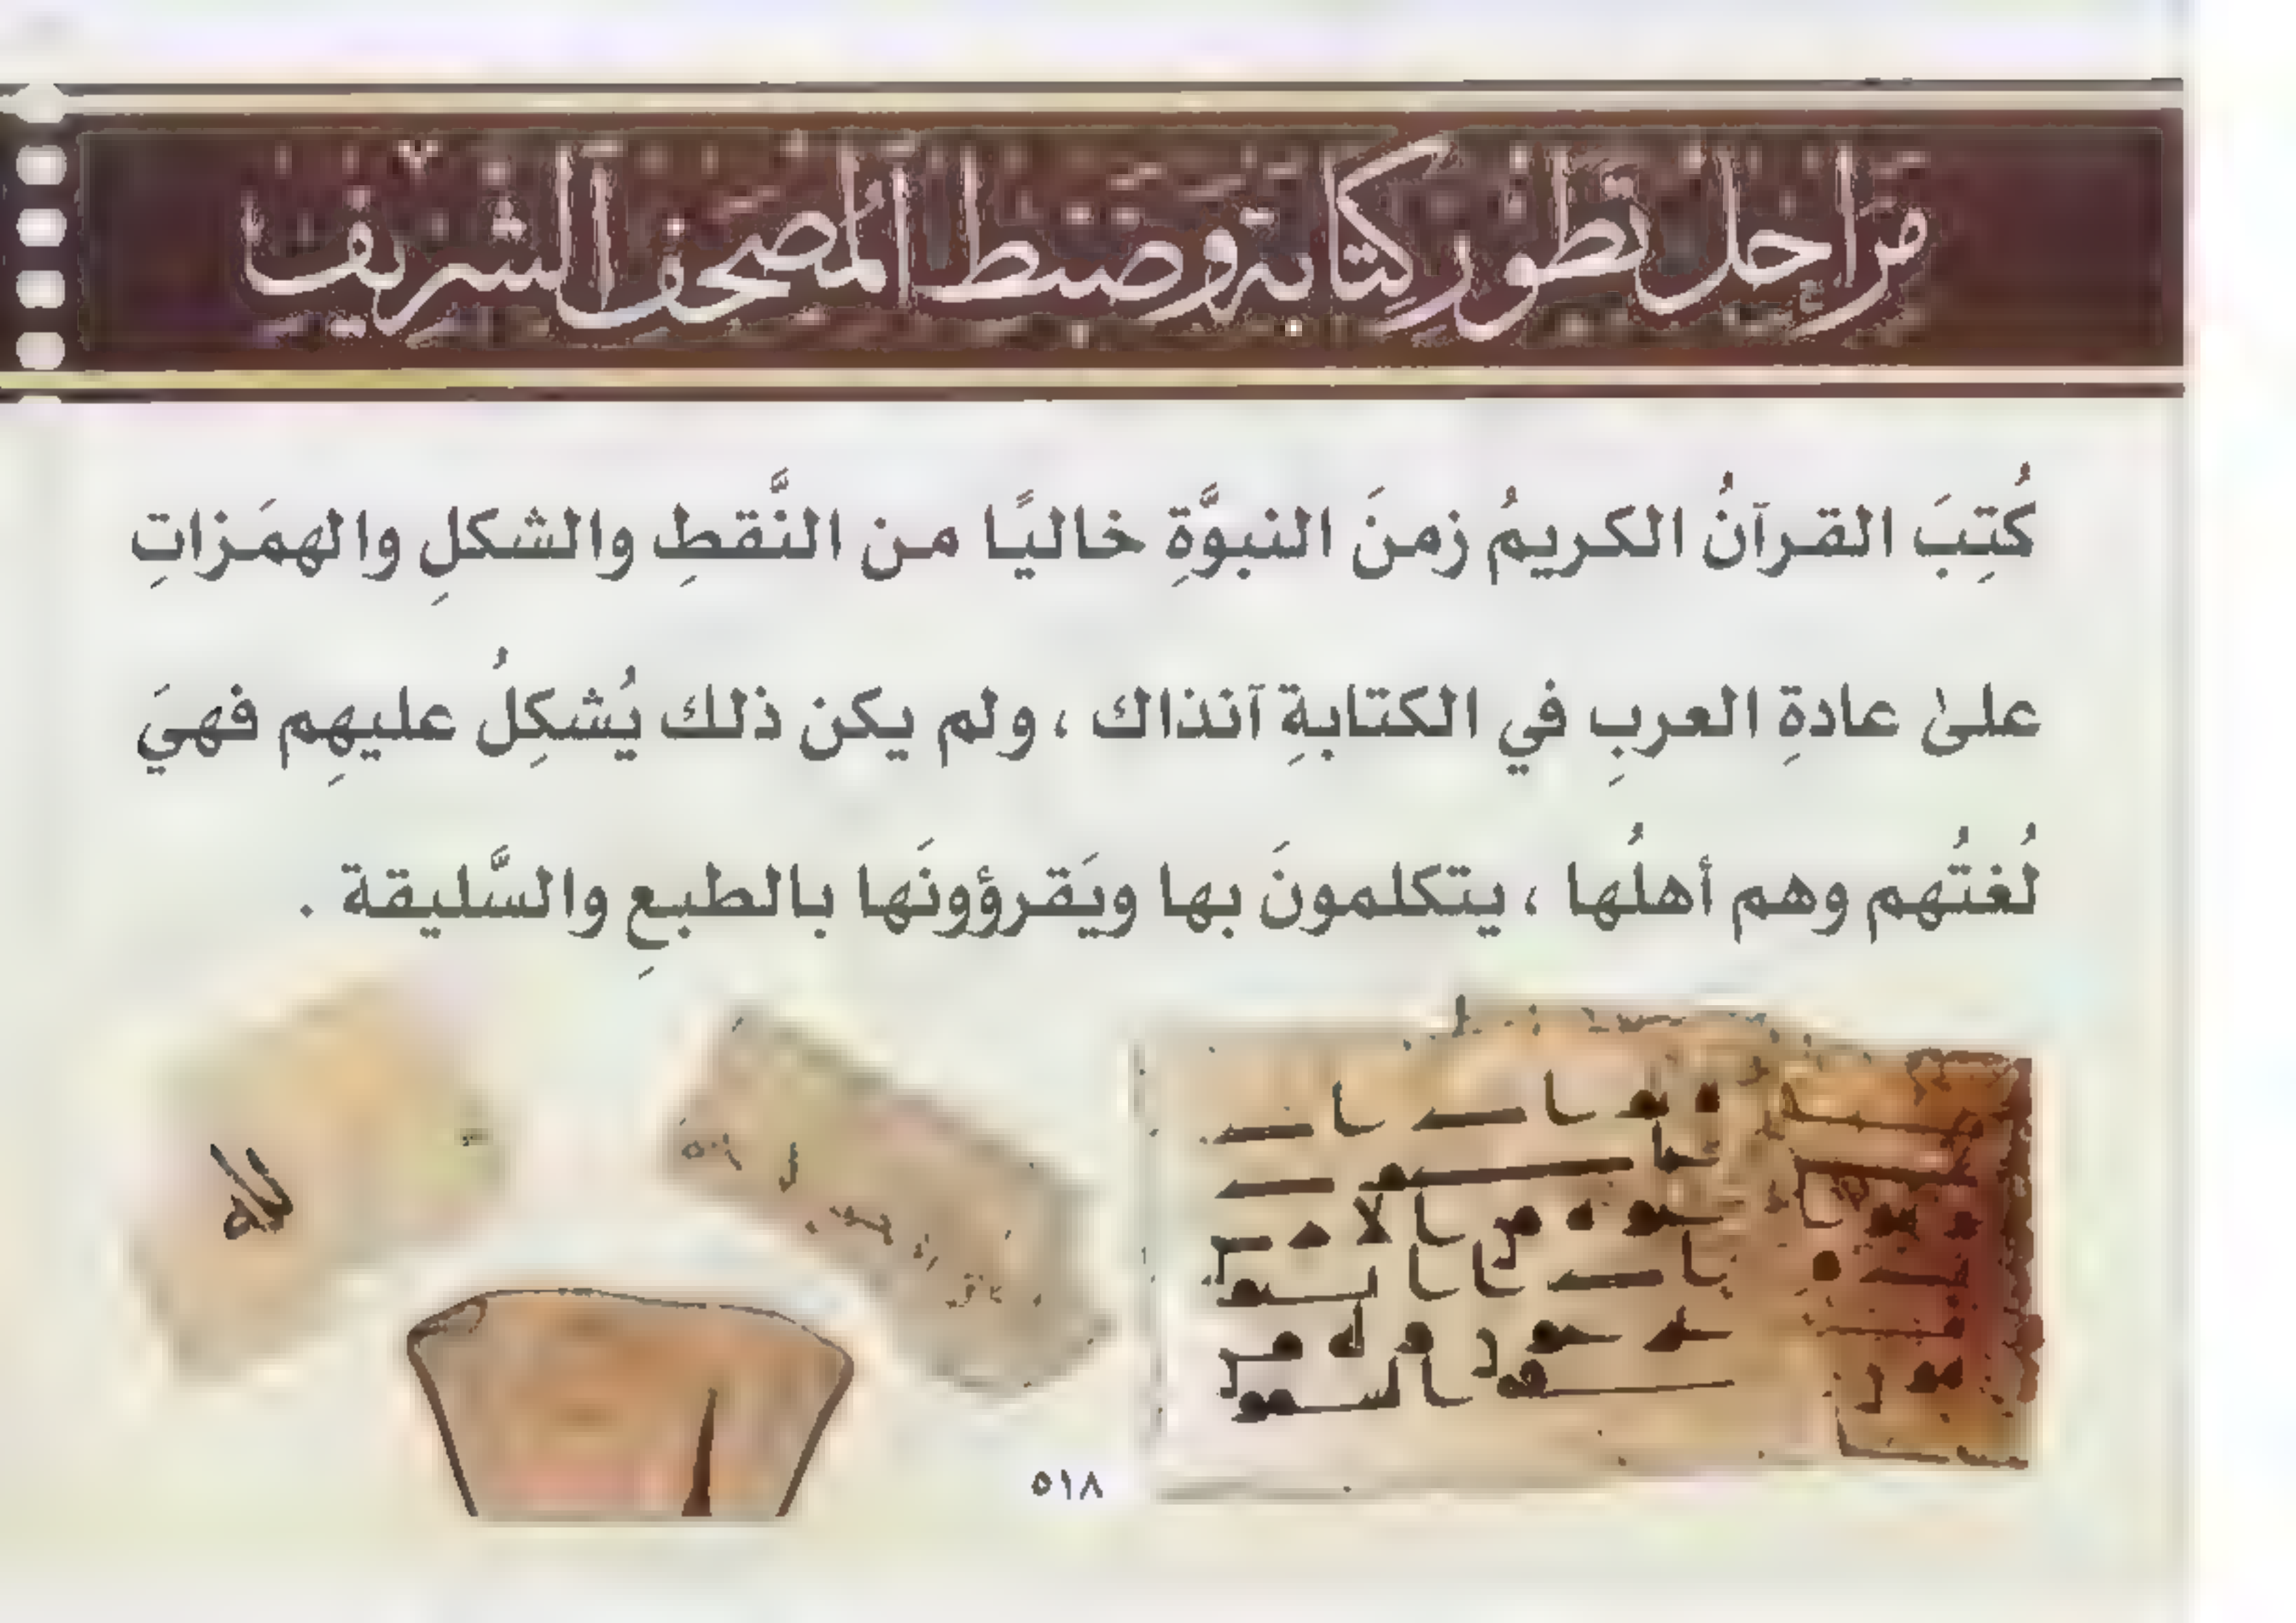 مَرَاحِل تَطَوُّر كِتَابَة وَضَبْط ٱلْمُصْحَف ٱلشَّرِيف
كُتِبَ القرآنُ الكريمُ زمنَ النبوَّةِ خاليًا من النَّقطِ والشكلِ والهمَزاتِ
علىٰ عادةِ العربِ في الكتابةِ آنذاك ، ولم يكن ذلك يُشكِلُ عليهِم فهيَ
لُغتُهم وهم أهلُها ، يتكلمونَ بها ويَقرؤونَها بالطبعِ والسَّليقة .
٥١٨